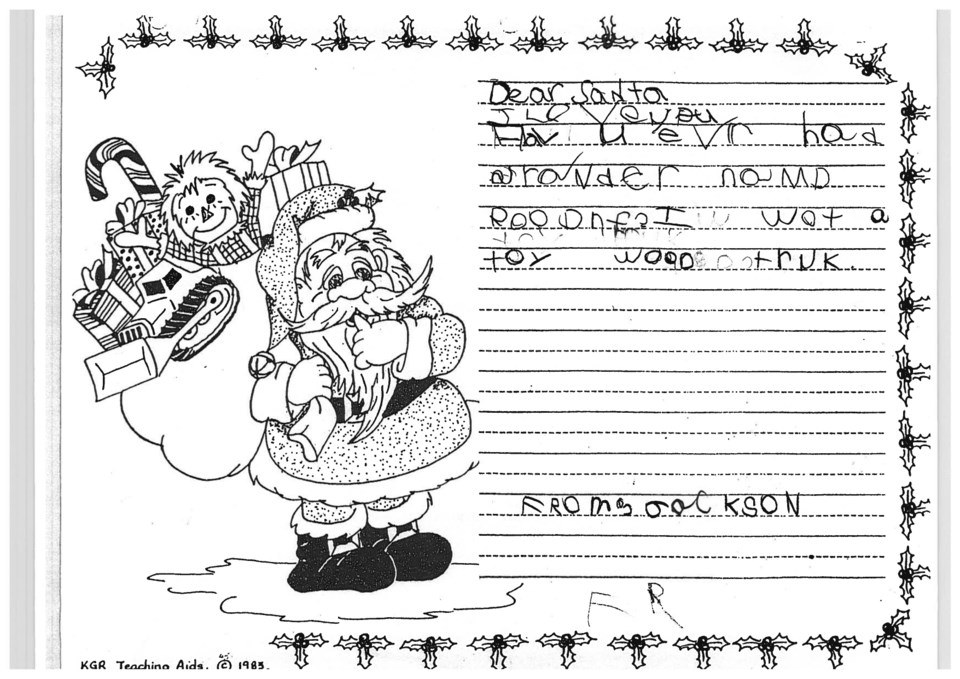 Dear Santa
I Lo Veyou
Hav u evr had
a rander namD
I wot a
toy wood truk.
FROMs JaCKSON
FR
KGR Teaching Aids. © 1985.